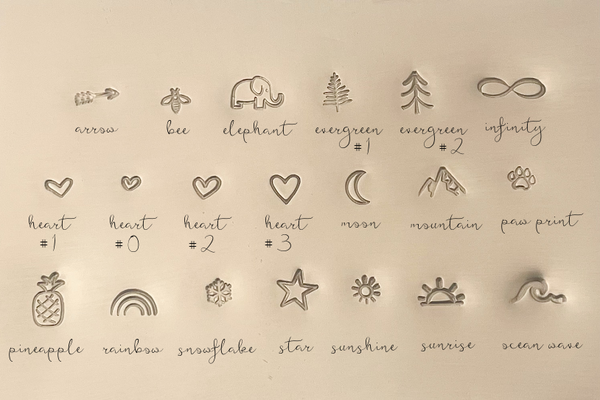 arrow bee elephant evergreen evergreen infinity
#1 #2
heart heart heart heart moon mountain paw print
#1 #0 #2 #3
pineapple rainbow snowflake star sunshine sunrise ocean wave